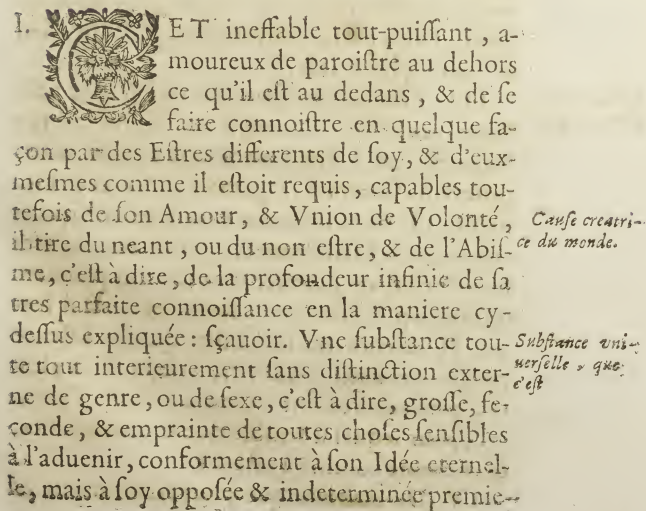 I. CET ineffable tout-puiſſant, a-
moureux de paroiſtre au dehors
ce qu'il eſt au dedans, & de ſe
faire connoiſtre en quelque fa-
çon par des Eſtres differents de ſoy, & d'eux-
meſmes comme il eſtoit requis, capables tou-
tefois de ſon Amour, & Vnion de Volonté,
il tire du neant, ou du non eſtre, & de l'Abiſ-
me, c'eſt à dire, de la profondeur infinie de ſa
tres parfaite connoiſſance en la maniere cy-
deſſus expliquée : ſçauoir. Vne ſubſtance tou-
te tout interieurement ſans diſtinction exter-
ne de genre, ou de ſexe, c'eſt à dire, groſſe, fe-
conde, & emprainte de toutes choſes ſenſibles
à l'aduenir, conformement à ſon Idée eternel-
le, mais à ſoy oppoſée & indeterminée premie-
Cauſe creatri-
ce du monde.
Subſtance vni-
uerſelle, que
c'eſt